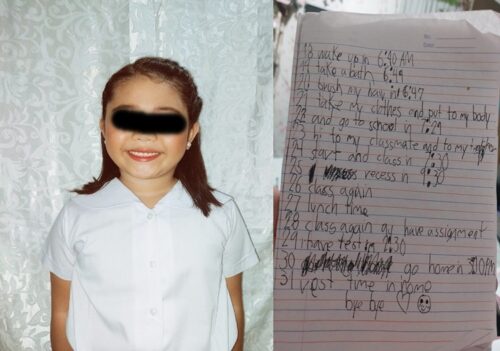 18 wake up in 6:40 AM
19 take a bath 6:44
brush my hair in 6:47
21 take my clothes and put to my body
22 and go to school in 7:29
23 hi to my classmate and to my
24 start and class in :30
25 recess in 9:30
26 class again
27 lunch time
28 class again gy have assignment
29 i have test in 2:30
30 go homen
31 rest time in home
bye bye